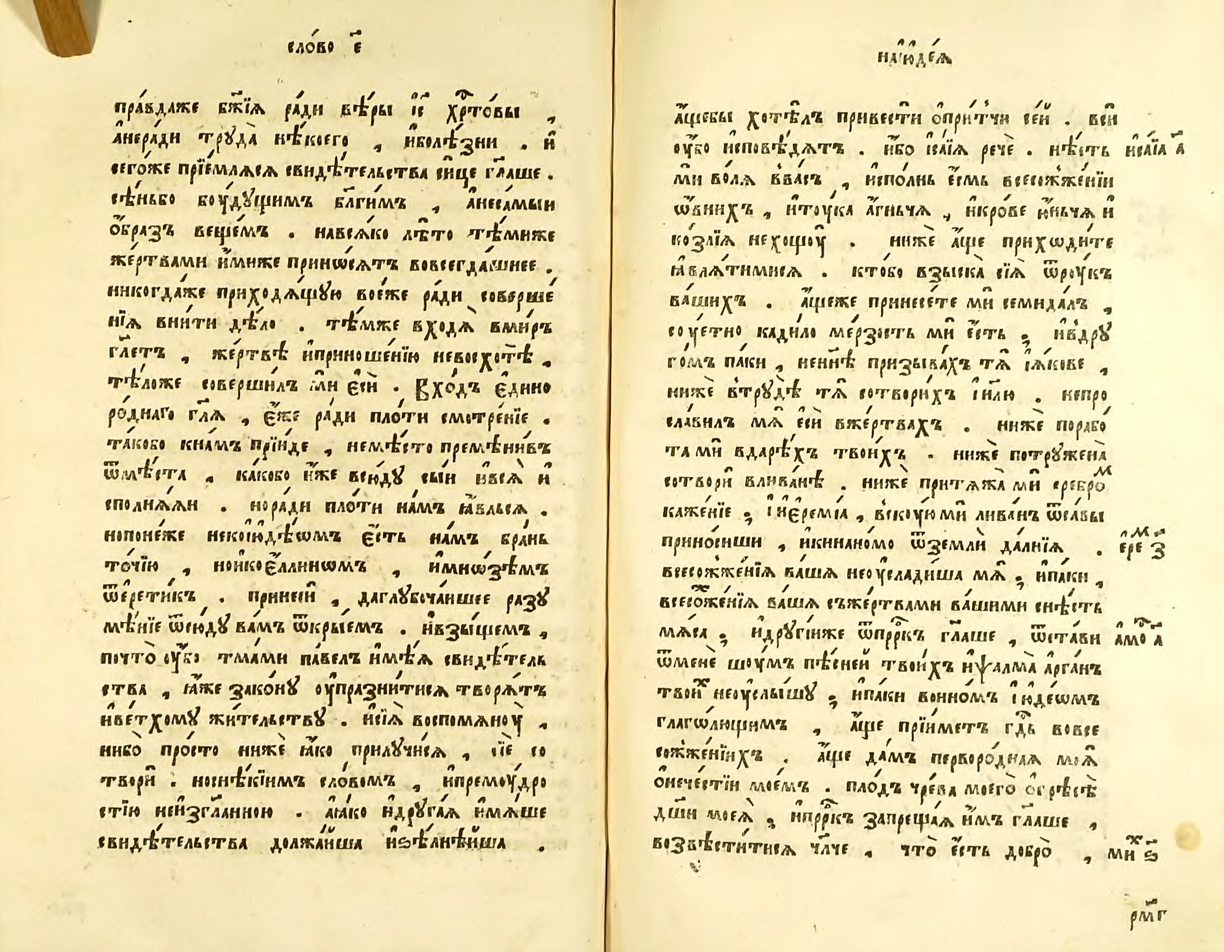 сло́во є҃
пра́вдаже бж҃їѧ ра́ди вѣ́ры і҆с҃ хр҃то́вы ,
а҆неради трꙋда̀ нѣ́коего , и҆болѣ́зни . и҆
сего́же прїе́млѧсѧ свидѣ́тельства си́це гл҃аше .
сѣ́ньбо бꙋ́дꙋщимъ бл҃ги́мъ , а҆неса́мыи
ѻ҆́бразъ веще́мъ . навсѧ́ко лѣ́то тѣ́миже
же́ртвами и҆́миже прино́сѧтъ вовсегда́шнее .
никогда́же приходѧ́щꙋю воеже ра́ди соверше́
нїѧ вни́ти дѣ́ло . тѣ́мже входѧ̀ вми́ръ
гл҃етъ , же́ртвѣ и҆приноше́нїю невосхотѣ̀ ,
тѣ́ложе соверши́лъ ми̑ є҆сѝ . Вхо́дъ є҆ди́но
ро́днаго гл҃ѧ , є҆́же ра́ди пло́ти смотре́нїе .
та́кобо кна́мъ прїи́де , немѣ́сто премѣни́въ
ѿмѣ́ста , ка́кобо и҆́же всю́дꙋ сы́и и҆всѧ̀ и҆
сполнѧ́ѧи . нора́ди пло́ти на́мъ ꙗ҆́вльсѧ .
нопоне́же некоі҆ꙋде́ѡмъ є҆́сть на́мъ бра́нь
то́чїю , нои҆коє҆́ллинѡмъ , и҆мнѡ́зѣмъ
ѿєре́тикъ . принесѝ , даглꙋбоча́ишее разꙋ
мѣ́нїе ѿсю́дꙋ ва́мъ ѿкры́емъ . и҆взы́щемъ ,
почто̀ ᲂу҆́бо тма́ми па́велъ и҆мѣ́ѧ свидѣ́тель
ства , ꙗ҆̀же зако́нꙋ ᲂу҆праздни́тисѧ творѧ́тъ
и҆ве́тхомꙋ жи́тельствꙋ . и҆сїѧ̀ воспомѧнꙋ̀ ,
нибо̀ про́сто нижѐ ꙗ҆́ко прилꙋчи́сѧ , сїѐ со
творѝ . носнѣ́кїимъ сло́вомъ , и҆премꙋ́дро
стїю неи҆згл҃а́нною . а҆ꙗ҆́ко и҆дрꙋга́ѧ и҆мѧ́ше
свидѣ́тельства должа́иша и҆ѕѣлнѣ́иша .
наі҆ꙋде́ѧ
а҆́щебы хотѣ́лъ привестѝ ѻ҆при́тчи се́и . всѝ
ᲂу҆́бо и҆сповѣ́дѧтъ . и҆́бо і҆са́їѧ речѐ . нѣ́сть
и҆са́їа а҃
ми во́лѧ вва́съ , и҆спо́лнь є҆́смь всесожже́нїи
ѻ҆́внихъ , и҆тꙋ́ка а҆́гньчѧ , и҆кро́ве ю҆́ньчѧ и҆
ко́злїѧ нехощꙋ̀ . нижѐ а҆́ще прихо́дите
ꙗ҆влѧ́тимисѧ . кто́бо взыска̀ сїѧ̀ ѿрꙋ́къ
ва́шихъ . а҆́щеже принесе́те мѝ семида́лъ ,
сꙋ́етно кади́ло ме́рзость мѝ є҆́сть , и҆вдрꙋ
го́мъ па́ки , нени́нѣ призыва́хъ тѧ̀ і҆ѧ́кове ,
нижѐ втрꙋдѣ̀ тѧ̀ сотвори́хъ і҆и҃лю . непро
сла́вилъ мѧ̀ є҆сѝ вже́ртвахъ . нижѐ порабо́
та мѝ вдарѣ́хъ твои́хъ . нижѐ потрꙋжена̀
сотворѝ влива́нѣ . нижѐ притѧжа̀ мѝ сребро́м
каже́нїе , і҆і҆єремі́а , вскꙋ́ю мѝ лива́н ѿса́вы
прино́сиши , и҆кинамо́мо ѿземлѝ да́лнїѧ .
і҆ере́м з҃
всесожже́нїѧ ва́шѧ неᲂу҆слади́ша мѧ̀ , и҆па́ки ,
всесоже́нїѧ ва́шѧ съже́ртвами ва́шими снѣ́сть
мѧса̀ , и҆дрꙋгі́иже ѿпрⷪ҇ркъ гл҃аше , ѿста́ви
а҆мо́с а҃
ѿменѐ шꙋ́мъ пѣ́сней твои́хъ и҆ѱалма̀ а҆рга́нъ
твои́х неᲂу҆слы́шꙋ , и҆па́ки во́нномъ і҆ꙋде́ѡмъ
глаго́лющимъ , а҆́ще прїи́метъ гдⷭ҇ь вовсе
сожже́нїихъ . а҆́ще да́мъ перворо́дная моѧ̀
ѻ҆нече́стїи мое́мъ . пло́дъ чре́ва моего̀ ѻ҆грѣсѣ̀
дш҃и моеѧ̀ , и҆прⷪ҇ркъ запреща́ѧ и҆́мъ гл҃аше ,
возвѣсти́тисѧ чл҃че , что̀ є҆́сть добро̀ ,
ми́х ѕ҃
рм҃г